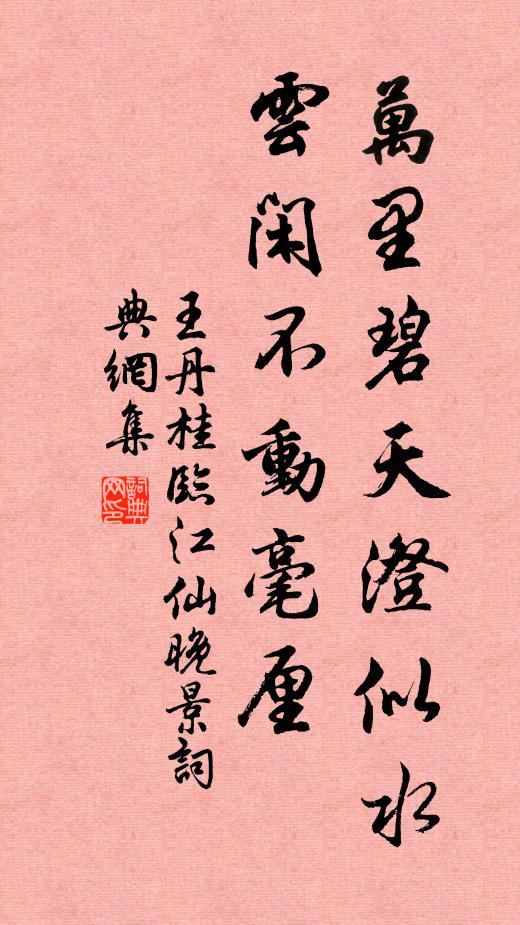 萬里碧天澄似水
雲閑不動毫厘
王丹桂臨江仙晚景詞
典網集
詞典网印